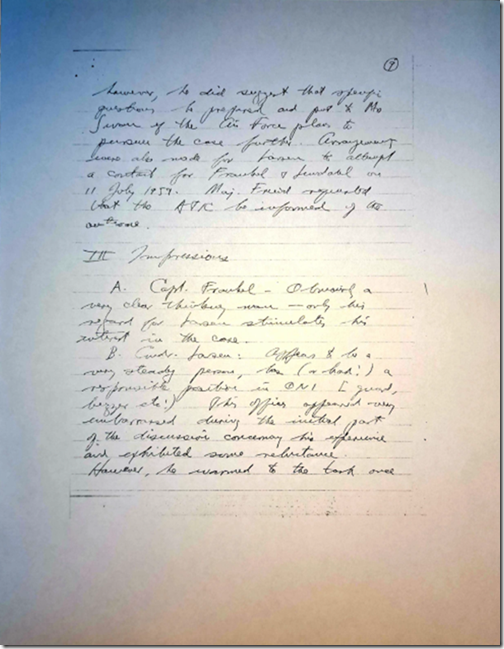 7
however, he did suggest that specific
questions be prepared and put to Mrs
Swan if the Air Force plans to
pursue the case further. Arrangements
were also made for Larsen to attempt
a contact for Frankel & Lundahl on
11 July 1959. Maj. Freid requested
that the ATIC be informed of the
outcome.
III Impressions
A. Capt. Frankel - Obviously a
very clear thinking man — only his
regard for Larsen stimulates his
interest in the case.
B. Cmdr. Larsen: Appears to be a
very steady person, has (or had!) a
responsible position in ONI I guess,
This officer appeared very
embarrassed during the initial part
of the discussion concerning his experience
and exhibited some reluctance.
However, he warmed to the task once